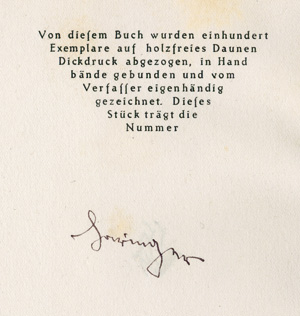 Von dieſem Buch wurden einhundert
Exemplare auf holzfreies Daunen
Dickdruck abgezogen, in Hand
bände gebunden und vom
Verfaſſer eigenhändig
gezeichnet. Dieſes
Stück trägt die
Nummer
Haringer